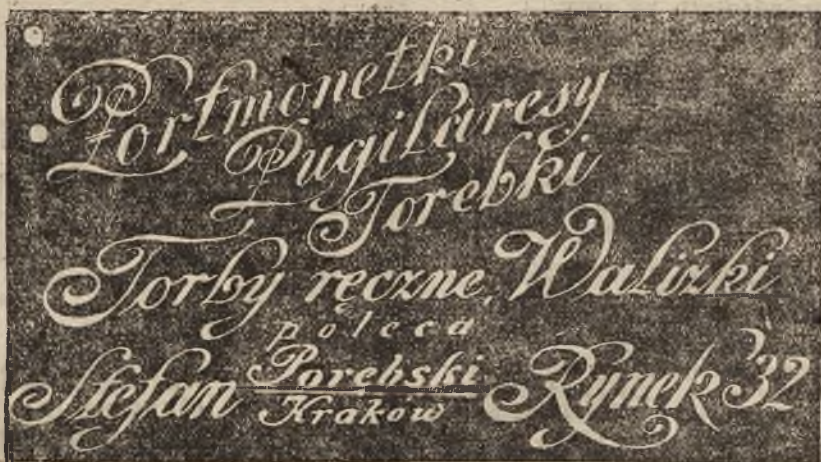 Portmonetki
Pugilaresy
Torebki
Torby ręczne, Walizki
poleca
Stefan Porębski Rynek 32
Kraków